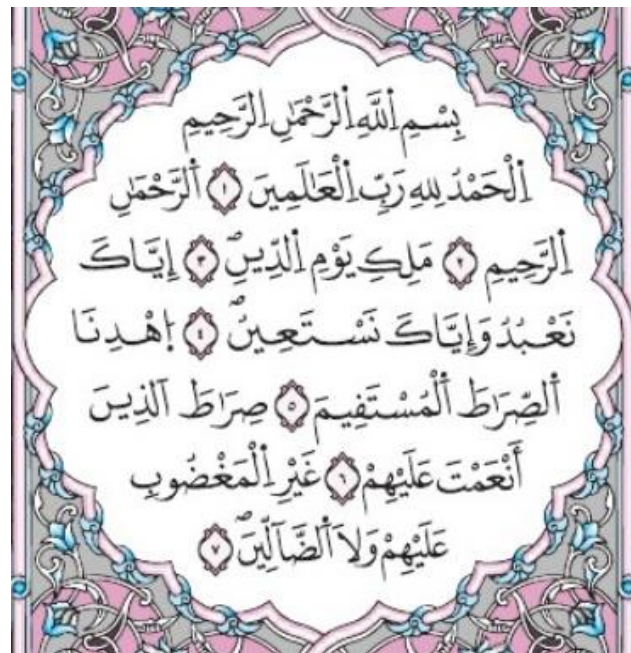 بِسْمِ اِ۬للَّهِ اِ۬لرَّحْمَٰنِ اِ۬لرَّحِيمِ
اِ۬لْحَمْدُ لِلهِ رَبِّ اِ۬لْعَٰلَمِينَ ١ اَ۬لرَّحْمَٰنِ
اِ۬لرَّحِيمِ ٢ مَلِكِ يَوْمِ اِ۬لدِّينِۖ ٣ إِيَّاكَ
نَعْبُدُ وَإِيَّاكَ نَسْتَعِينُۖ ٤ اِ۪هْدِنَا
اَ۬لصِّرَٰطَ اَ۬لْمُسْتَفِيمَ ٥ صِرَٰطَ اَ۬لذِينَ
أَنْعَمْتَ عَلَيْهِمْ ٦ غَيْرِ اِ۬لْمَغْضُوبِ
عَلَيْهِمْ وَلَا اَ۬لضَّآلِّينَۖ ٧